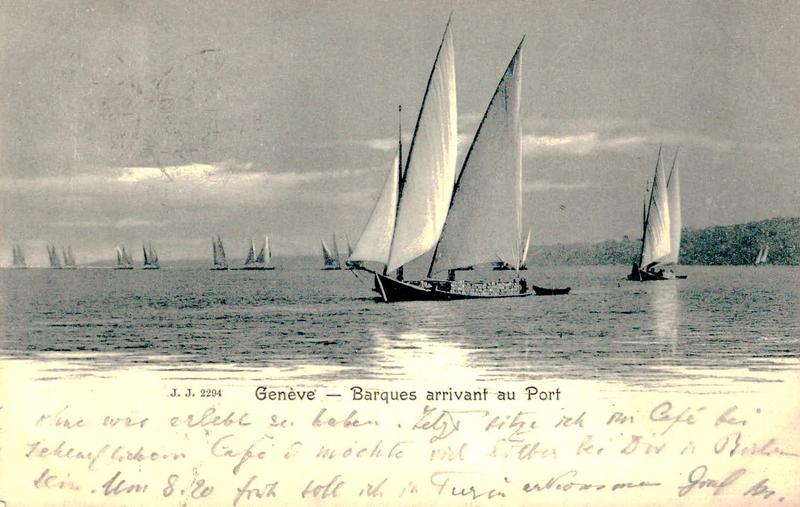 J. J. 2294 Genève — Barques arrivant au Port
ohne was erlebt zu haben. Jetzt sitze ich im Café bei
Café & möchte viel bei Dir in
sein. Um 8.20 früh soll ich in Turin ankommen